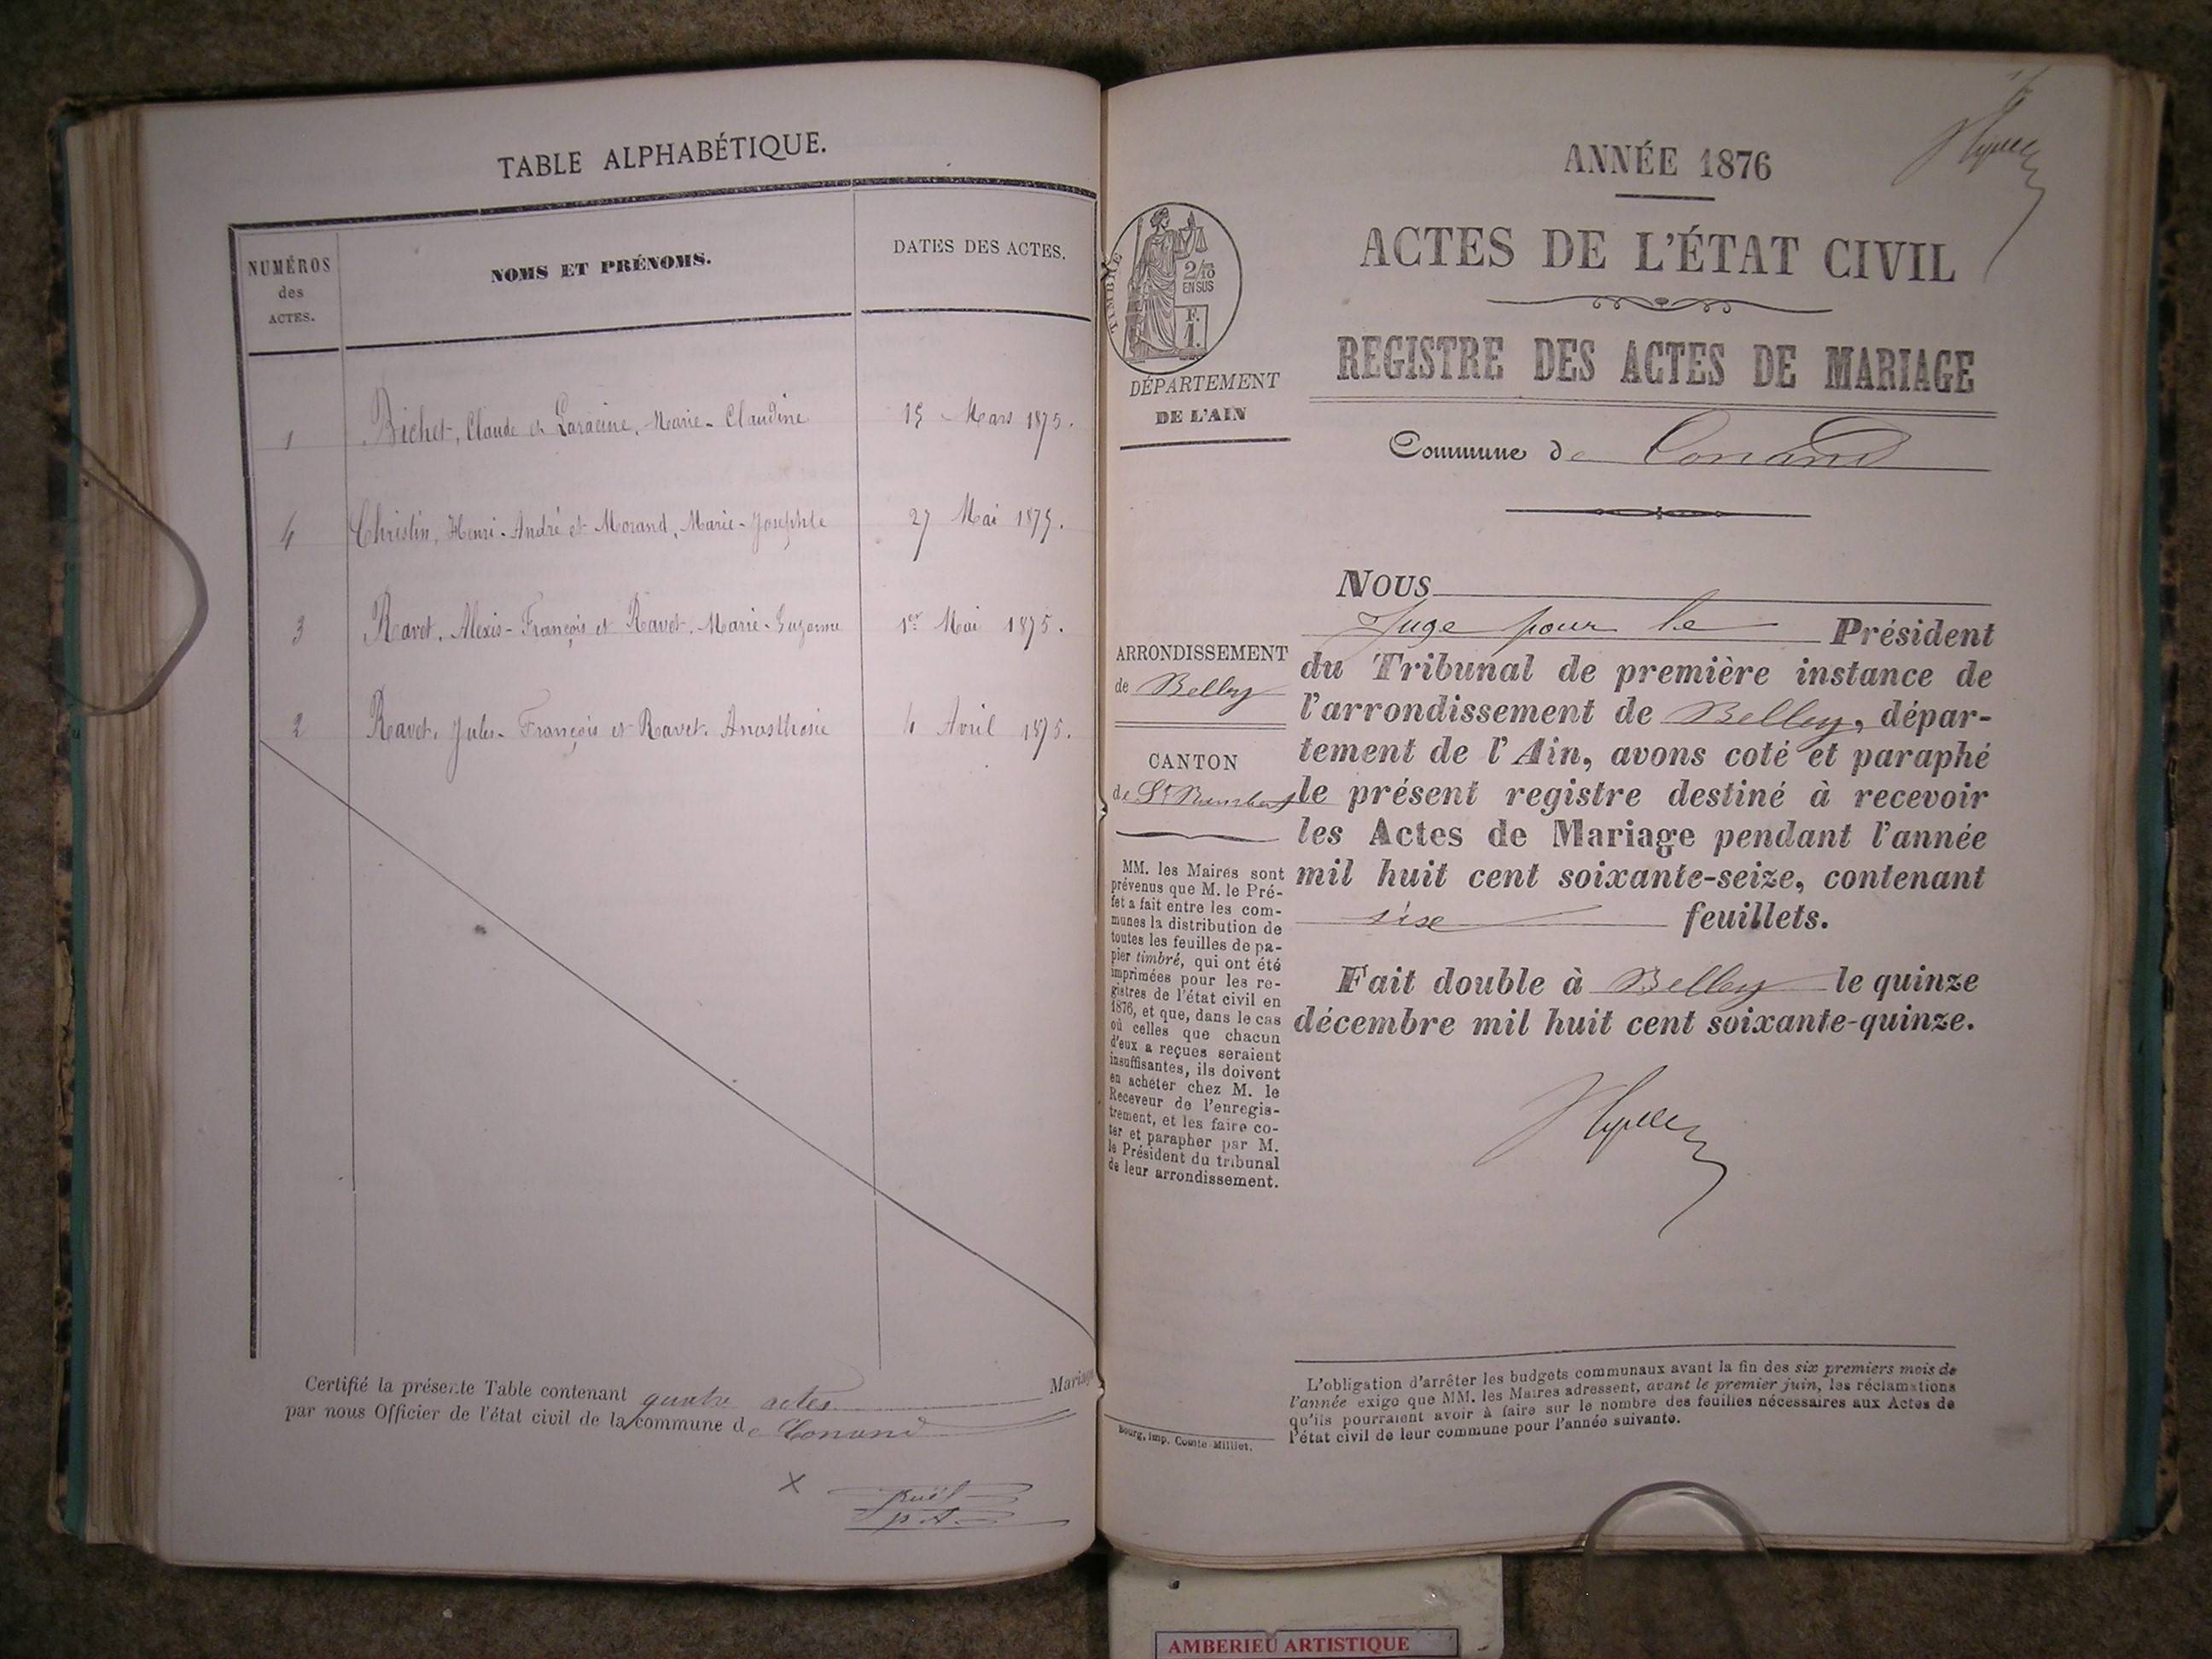 TABLE ALPHABÉTIQUE.
NUMÉROS
des
ACTES.
NOMS ET PRÉNOMS.
DATES DES ACTES.
1 Bichet, Claude et Laracine, Marie-Claudine 15 Mars 1875.
4 Christin, Henri-André et Morand, Marie-Josephte 27 Mai 1875.
3 Ravet, Alexis-François et Ravet, Marie-Suzanne 1er Mai 1875.
2 Ravet, Jules-François et Ravet, Anasthasie 4 Avril 1875.
Certifié la présente Table contenant quatre actes Mariage
par nous Officier de l'état civil de la commune de Conand
X
TIMBRE
2/10
EN SUS
F.
1.
DÉPARTEMENT
DE L'AIN
ARRONDISSEMENT
de Belley
CANTON
de St Rambert
MM. les Maires sont
prévenus que M. le Pré-
fet a fait entre les com-
munes la distribution de
toutes les feuilles de pa-
pier timbré, qui ont été
imprimées pour les re-
gistres de l'état civil en
1876, et que, dans le cas
où celles que chacun
d'eux a reçues seraient
insuffisantes, ils doivent
en achéter chez M. le
Receveur de l'enregis-
trement, et les faire co-
ter et parapher par M.
le Président du tribunal
de leur arrondissement.
Bourg, imp. Comte-Milliet.
ANNÉE 1876
ACTES DE L'ÉTAT CIVIL
REGISTRE DES ACTES DE MARIAGE
Commune de Conand
Nous
Juge pour le Président
du Tribunal de première instance de
l'arrondissement de Belley, dépar-
tement de l'Ain, avons coté et paraphé
le présent registre destiné à recevoir
les Actes de Mariage pendant l'année
mil huit cent soixante-seize, contenant
sise feuillets.
Fait double à Belley le quinze
décembre mil huit cent soixante-quinze.
L'obligation d'arrêter les budgets communaux avant la fin des six premiers mois de
l'année exige que MM. les Maires adressent, avant le premier juin, les réclamations
qu'ils pourraient avoir à faire sur le nombre des feuilles nécessaires aux Actes de
l'état civil de leur commune pour l'année suivante.
AMBERIEU ARTISTIQUE